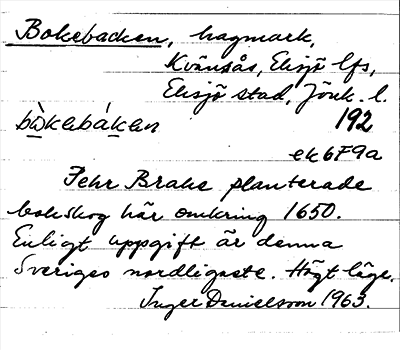 Bokebacken, hagmark,
Kvänsås, Eksjö lfs,
Eksjö stad, Jönk. l.
bòkebákan 192
ek6F9a
Pehr Brahe planterade
bokskog här omkring 1650.
Enligt uppgift är denna
Sveriges nordligaste. Högt läge.
Inger Danielsson 1963.